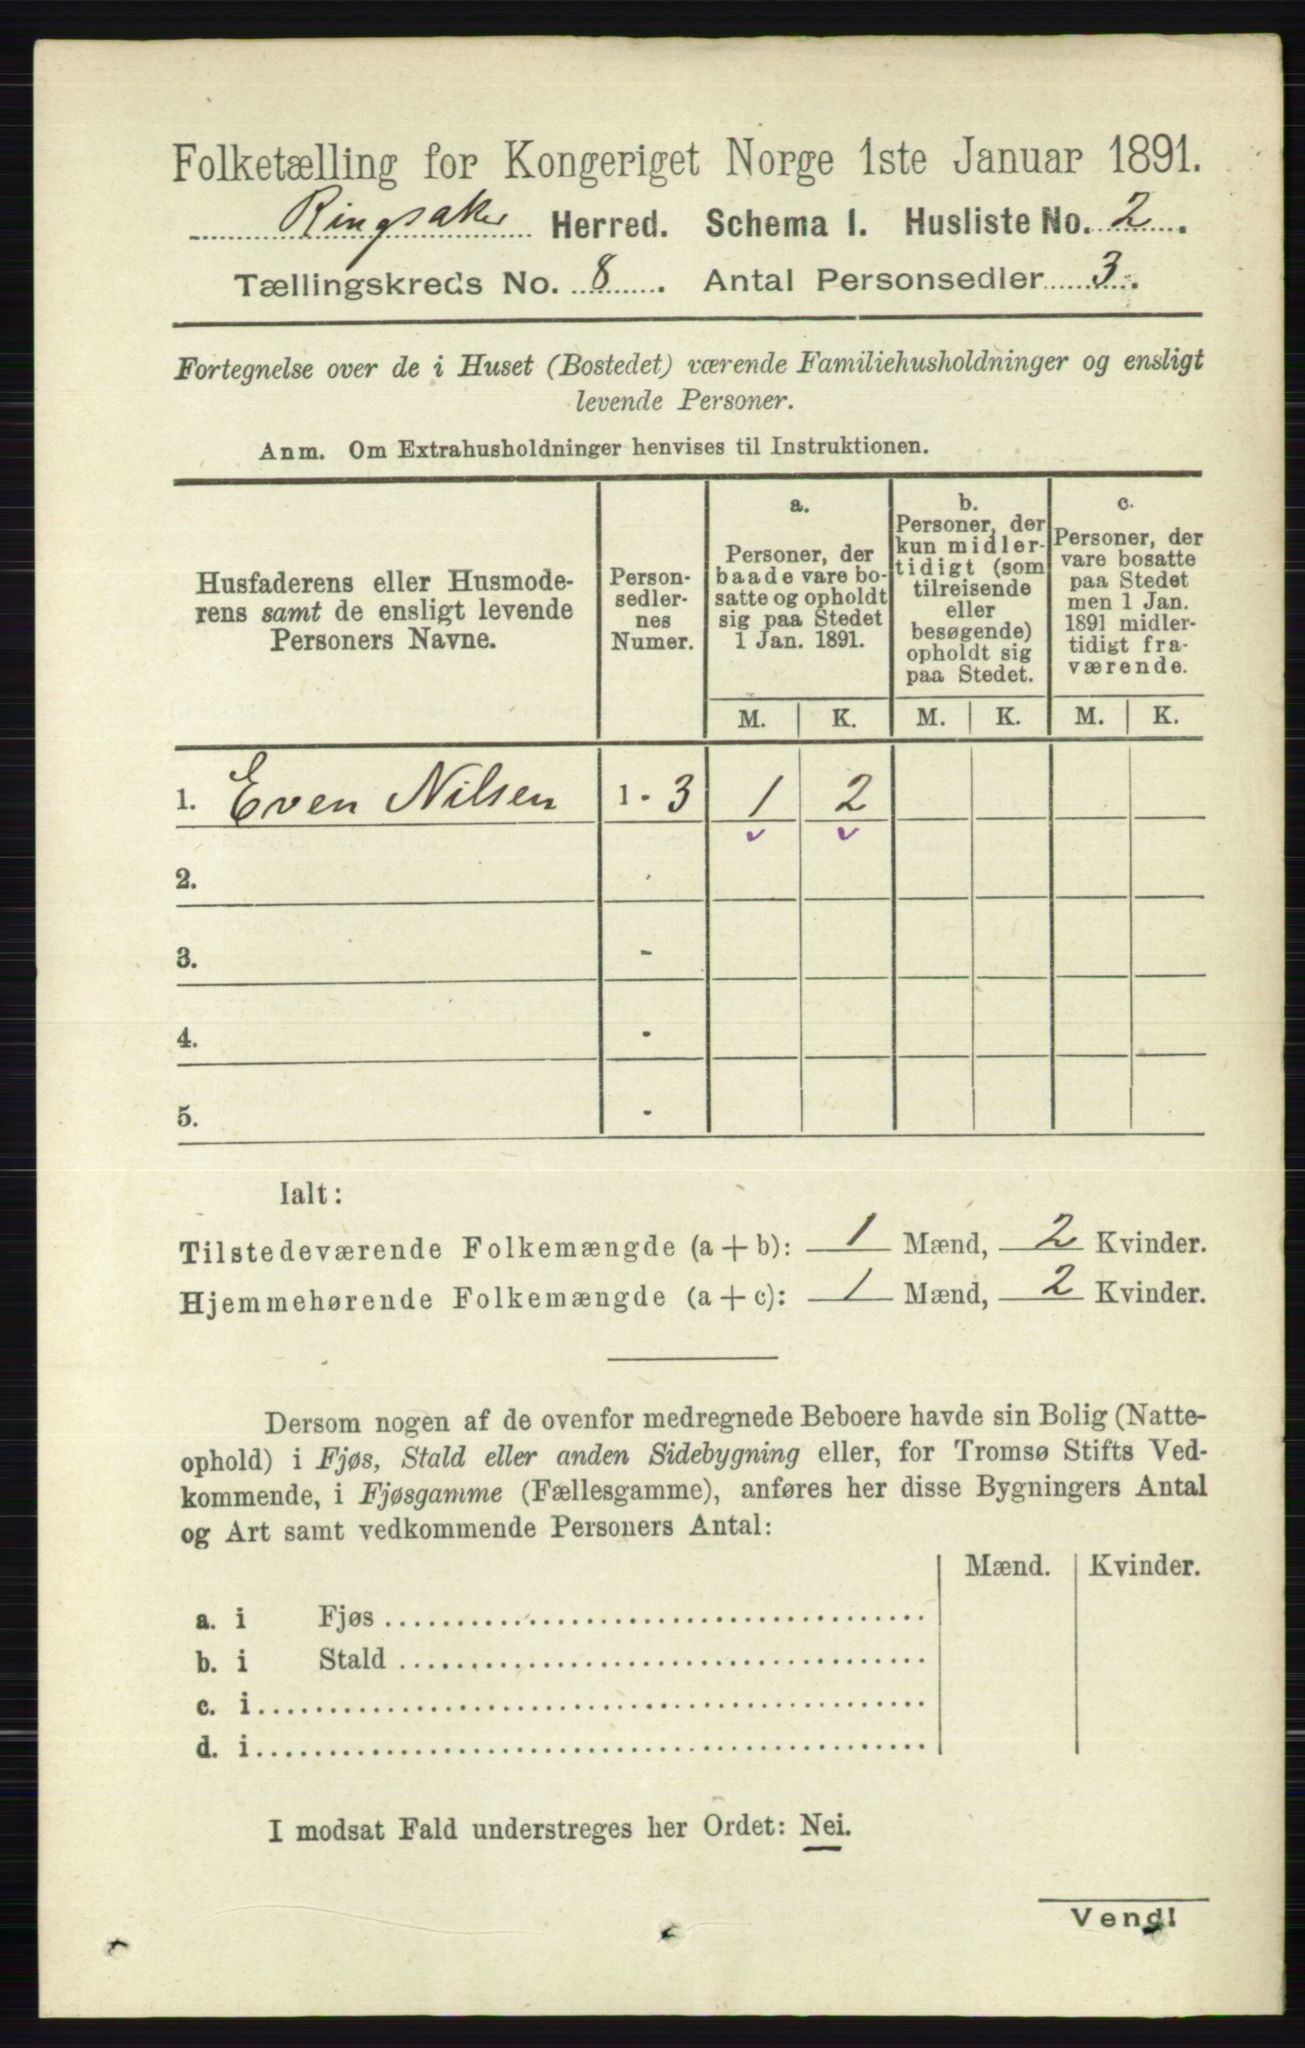 Folketælling for Kongeriget Norge 1ste Januar 1891.
Ringsaker Herred. Schema I. Husliste No. 2.
Tællingskreds No. 8. Antal Personsedler 3.
Fortegnelse over de i Huset (Bostedet) værende Familiehusholdninger og ensligt
levende Personer.
Anm. Om Extrahusholdninger henvises til Instruktionen.
Husfaderens eller Husmode-
rens samt de ensligt levende
Personers Navne.
Person-
sedler-
nes
Numer.
a.
Personer, der
baade vare bo-
satte og opholdt
sig paa Stedet
1 Jan. 1891.
b.
Personer, der
kun midler-
tidigt (som
tilreisende
eller
besøgende)
opholdt sig
paa Stedet.
c.
Personer, der
vare bosatte
paa Stedet
men 1 Jan.
1891 midler-
tidigt fra-
værende.
M. K. M. K. M. K.
1. Even Nilsen 1 - 3 1 2
2.
3. -
4. -
5. -
Ialt:
Tilstedeværende Folkemængde (a + b): 1 Mænd, 2 Kvinder.
Hjemmehørende Folkemængde (a + c): 1 Mænd, 2 Kvinder.
Dersom nogen af de ovenfor medregnede Beboere havde sin Bolig (Natte-
ophold) i Fjøs, Stald eller anden Sidebygning eller, for Tromsø Stifts Ved-
kommende, i Fjøsgamme (Fællesgamme), anføres her disse Bygningers Antal
og Art samt vedkommende Personers Antal:
Mænd. Kvinder.
a. i Fjøs
b. i Stald
c. i
d. i
I modsat Fald understreges her Ordet: Nei.
Vend!